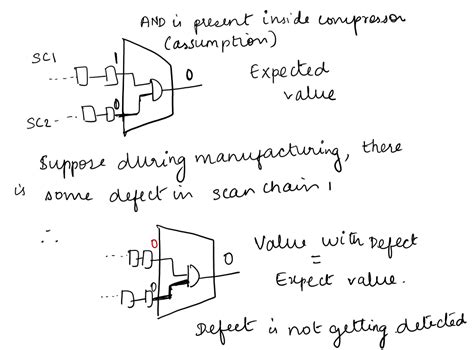 AND is present inside compressor
(assumption)
SC1
1
0
Expected
value
SC2-
0
Suppose during manufacturing, there
is some defect in scan chain 1
∴
0
0
Value with Defect
=
Expect value.
0
Defect is not getting detected